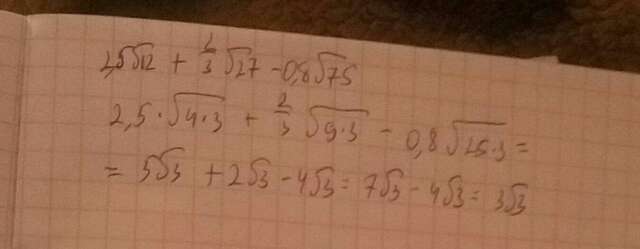 2,5√12 + 2/3 √27 - 0,8√75
2,5 · √4·3 + 2/3 √9·3 - 0,8 √25·3 =
= 5√3 + 2√3 - 4√3 = 7√3 - 4√3 = 3√3